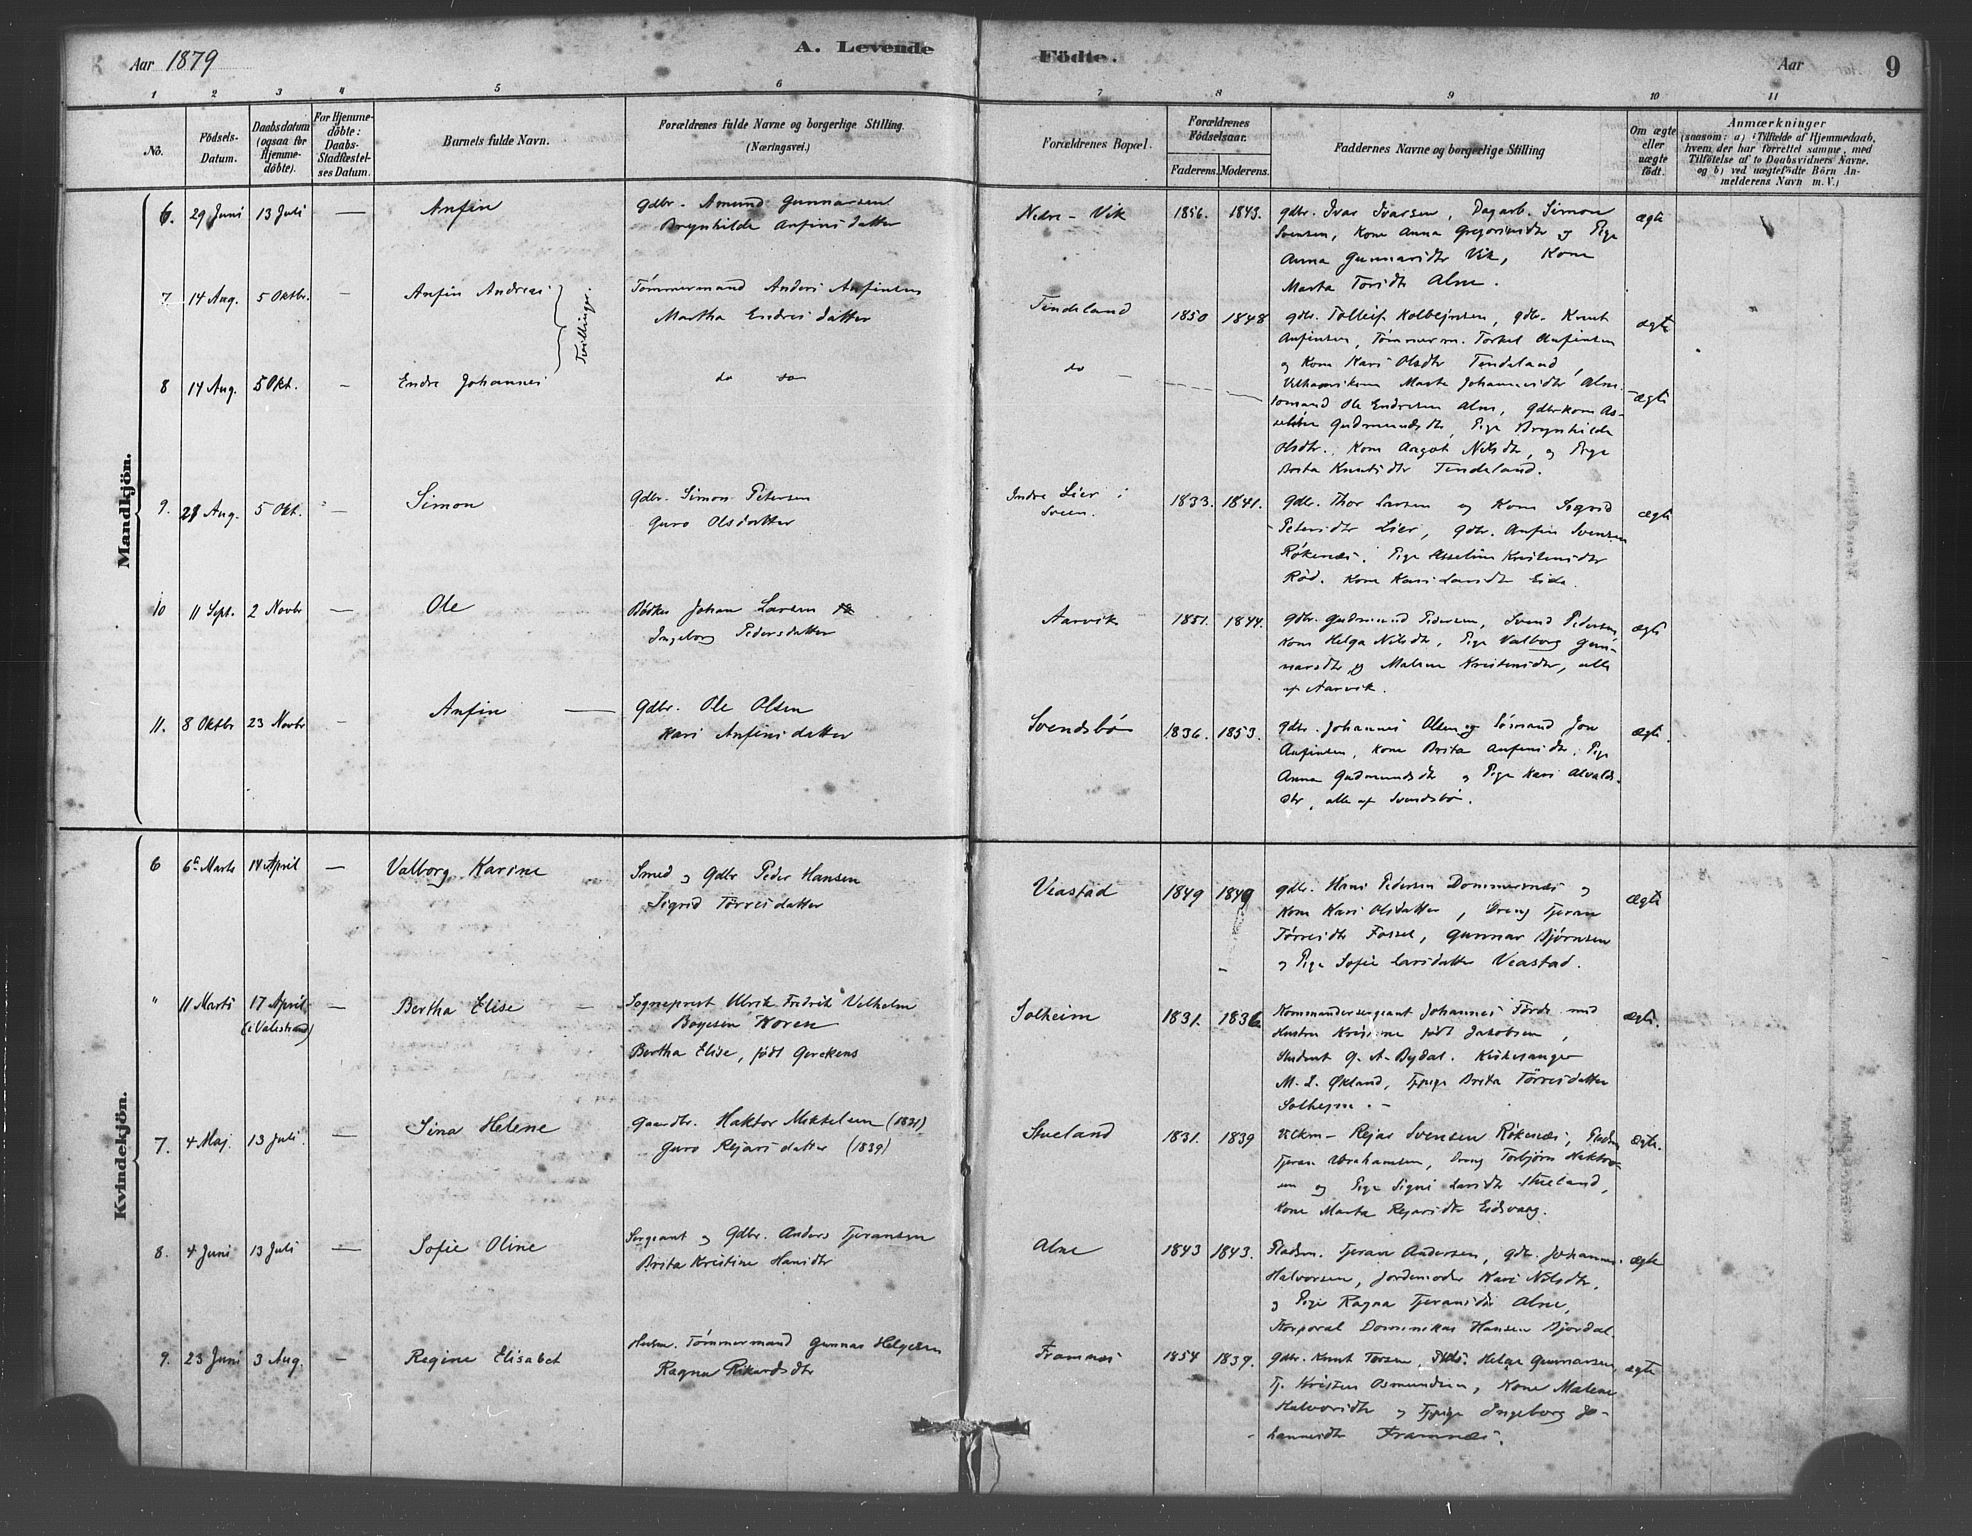 Aar 1879
A. Levende
Födte.
Aar
9
1 2 3 4 5 6 7 8 9 10 11
No.
Födsels-
Datum.
Daabsdatum
(ogsaa for
Hjemme-
döbte).
For Hjemme-
döbte:
Daabs-
Stadfæstel-
ses Datum.
Barnets fulde Navn.
Forældrenes fulde Navne og borgerlige Stilling.
(Næringsvei.)
Forældrenes Bopæl.
Forældrenes
Födselsaar.
Faderens. Moderens.
Faddernes Navne og borgerlige Stilling
Om ægte
eller
uægte
født.
Anmærkninger
(saasom: a) i Tilfælde af Hjemmedaab,
hvem der har forrettet samme, med
Tilföielse af to Daabsvidners Navne.
og b) ved uægtefödte Börn An-
melderens Navn m. V.)
Mandkjön.
6. 29 Juni 13 Juli — Anfin
Gdbr. Amund Gunnarsen
Brynhilde Anfinsdatter
Nedre-Vik 1856. 1843.
Gdbr. Ivar Ivarsen, Dagarb. Simon
Svensen, Kone Anna Gregoriusdtr og Pige
Anna Gunnarsdtr Vik, Kone
Marta Torsdtr Alne.
ægte
7 14 Aug. 5 Oktbr. — Anfin Andreas
Tvillinger.
Tømmermand Anders Anfinsen
Martha Endresdatter
Tindeland 1850 1848
Gdbr. Tolleif Kolbejnsen, Gdbr. Knut
Anfinsen, Tømmerm. Torkel Anfinsen
og Kone Kari Olsdtr Tindeland,
ægte
8 14 Aug. 5 Okt. — Endre Johannes
do do
do
Marta Johannesdtr Alne.
Sømand Ole Endresen Alne, Gdbrkone As-
Gudmundsdtr, Pige Brynhilde
Olsdtr., Kone Aagot Nilsdtr, og Pige
Brita Knutsdtr Tindeland.
ægte
9. 28 Aug. 5 Okt. — Simon
Gdbr. Simon Petersen
Guro Olsdatter
Indre Lier i
Sveen.
1833. 1841.
Gdbr. Thor Larsen og Kone Sigrid
Petersdtr Lier, Gdbr. Anfin Svensen
Røkenæs. Pige Asseline Kristensdtr
Rød. Kone Kari Larsdtr Eide.
ægte
10 11 Sept. 2 Novbr — Ole
Bødker Johan Larsen
Ingeborg Pedersdatter
Aarvik 1851. 1844.
Gdbr. Gudmund Pedersen, Svend Pedersen,
Kone Helga Nilsdtr, Pige Valborg Gun-
narsdtr og Malene Kristensdtr, alle
af Aarvik.
ægte
11. 8 Oktbr 23 Novbr — Anfin —
Gdbr. Ole Olsen
Kari Anfinsdatter
Svendsbø 1836. 1853.
Gdbr. Johannes Olsen og Sømand Jon
Anfinsen, Kone Brita Anfinsdtr, Pige
Anna Gudmundsdtr og Pige Kari Alvalds-
dtr, alle af Svendsbø.
ægte
Kvindekjön.
6 6te Marts 14 April — Valborg Karine
Smed og Gdbr Peder Hansen
Sigrid Tørresdatter
Veastad 1849 1849
Gdbr. Hans Pedersen Dommersnæs og
Kone Kari Olsdatter, Dreng Tjeran
Tørresdtr Fossel, Gunnar Bjørnsen
og Pige Sofie Larsdatter Veastad.
ægte
" 11 Marts 17 April — Bertha Elise —
(i Valestrand)
Sogneprest Ulrik Fredrik Vilhelm
Boyesen Koren
Bertha Elise, født Gerckens
Solheim 1831. 1836
Kommandersergeant Johannes Førde med
Hustru Kristine født Jakobsen,
Student G. A. Bydal. Kirkesanger
M. L. Økland, Tjpige Brita Tørresdatter
Solhejm.
ægte.
7. 4 Maj. 13 Juli. — Sina Helene
Gaardbr. Haktor Mikkelsen (1831)
Guro Rejarsdatter (1839)
Stueland 1831. 1839
Rejar Svensen Røkenæs, Pladsm.
Tjeran Abrahamsen, Dreng Torbjørn Haktor-
sen og Pige Signi Larsdtr Stueland,
Kone Marta Rejarsdtr Eidsvaag.
ægte.
8. 4 Juni 13 Juli — Sofie Oline
Sergeant og Gdbr. Anders Tjeransen
Brita Kristine Hansdtr
Alne 1843 1843.
Pladsm. Tjeran Andersen, Gdb. Johannes
Halvorsen, Jordemoder Kari Nilsdtr,
og Pige Ragna Tjeransdtr Alne,
Korporal Dominikus Hansen Bjordal.
ægte
9. 23 Juni 3 Aug. — Regine Elisabet
Husm. Tømmermand Gunnar Helgesen
Ragna Rikardsdtr
Framnæs 1854 1839.
Gdbr. Knut Torsen, Plds. Helge Gunnarsen,
Tj. Kristen Osmundsen, Kone Malene
Halvorsdtr og Tjpige Ingeborg Jo-
hannesdtr Framnæs.
ægte